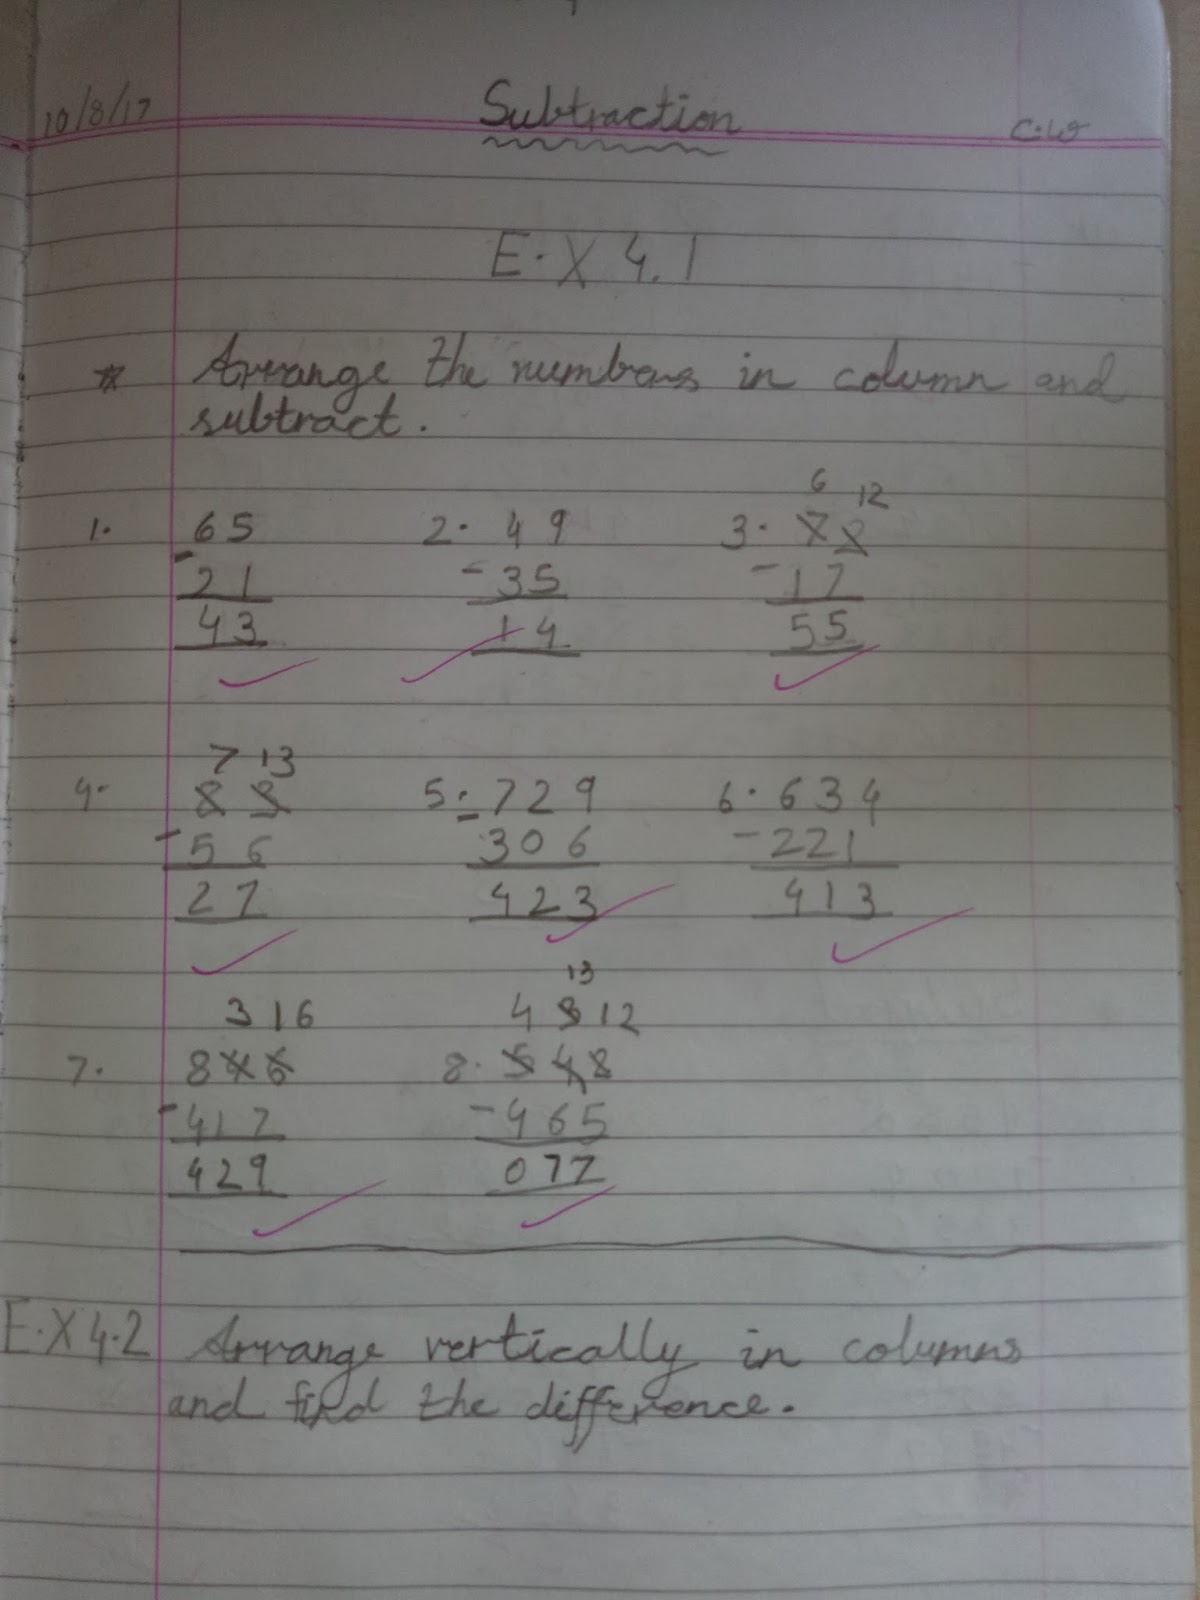 10/8/17 Subtraction C.W
E.X 4.1
* Arrange the numbers in column and
subtract.
6 12
1. 65 2. 49 3. 72
- 21 - 35 - 17
43 14 55
7 13
4. 83 5. 729 6. 634
- 56 - 306 - 221
27 423 413
13
3 16 4 3 12
7. 846 8. 542
- 417 - 465
429 077
E.X 4.2 Arrange vertically in columns
and find the difference.